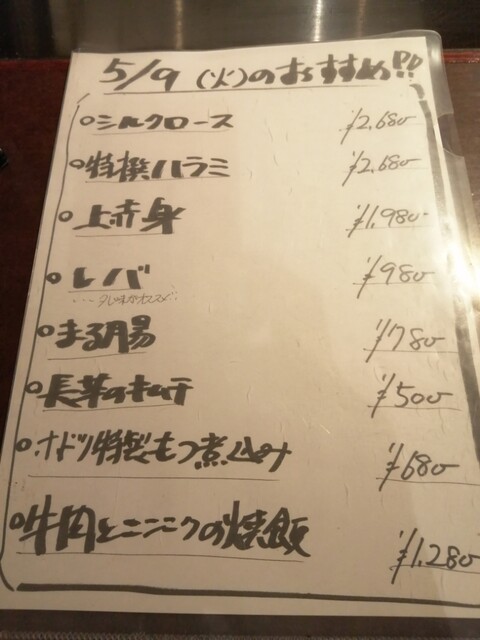 5/9 (火)のおすすめ!!
○シルクロース ¥2,680
○特撰ハラミ ¥2,680
○上赤身 ¥1,980
○レバ ¥980
○まる腸 ¥780
○長芋のキムチ ¥500
○ホドリ特製もつ煮込み ¥680
○牛肉とニンニクの焼飯 ¥1,280